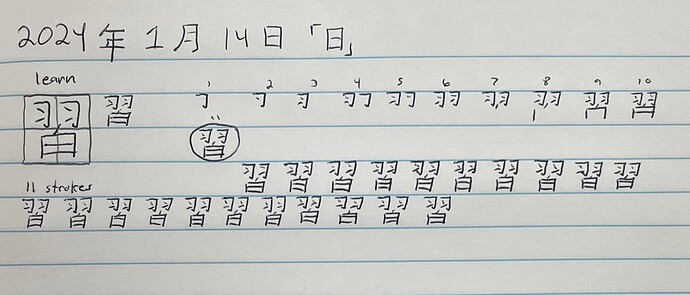 2024年1月14日「日」
learn 1 2 3 4 5 6 7 8 9 10
習 習
11
習
習 習 習 習 習 習 習 習 習 習
11 strokes
習 習 習 習 習 習 習 習 習 習 習